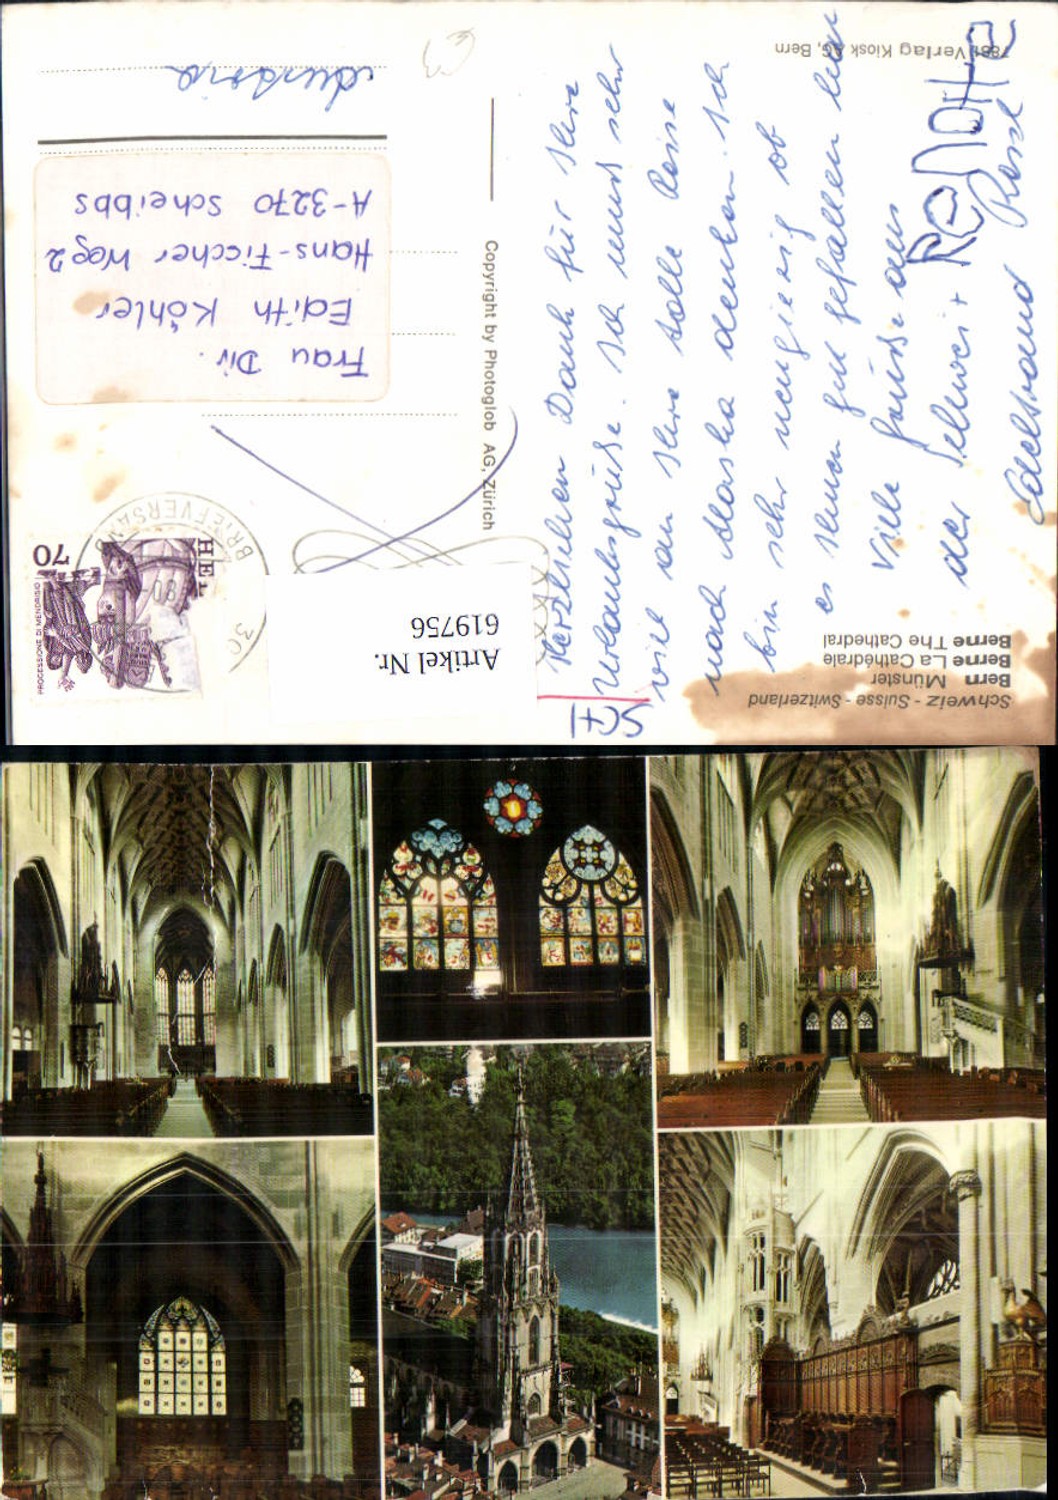 Schweiz - Suisse - Switzerland
Bern Münster
Berne La Cathédrale
Berne The Cathedral
Herzlichen Dank für Ihre
Urlaubsgrüße. Ich muss sehr
viel an Ihre tolle Reise
nach Alaska denken. Ich
bin sehr neugierig ob
es Ihnen gut gefallen hat
Viele Grüße aus
der Schweiz +
Edeltraud
7881 Verlag Kiosk AG, Bern
Copyright by Photoglob AG, Zürich
HEL
70
PROCESSIONE DI MENDRISIO
BRIEFVERSAND
30
Frau Dir.
Edith Köhler
Hans-Fischer Weg 2
A-3270 Scheibbs
Austria
Artikel Nr.
619756
SCH